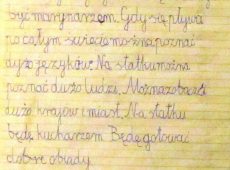 być marynarzem. Gdy się pływa
po całym świecie można poznać
dużo języków. Na statku można
poznać dużo ludzi. Można zobaczyć
dużo krajów i miast. Na statku
będę kucharzem. Będę gotować
dobre obiady.